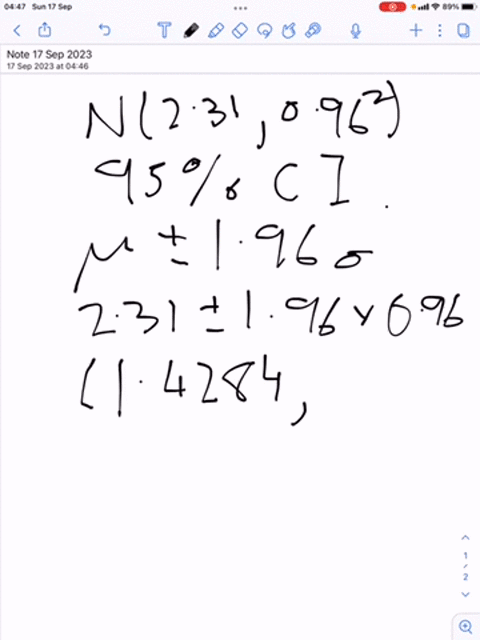 04:47 Sun 17 Sep
89%
Note 17 Sep 2023
17 Sep 2023 at 04:46
N(2.31, 0.96²)
95% CI
μ ± 1.96σ
2.31 ± 1.96 × 0.96
(1.4284,
1
/
2